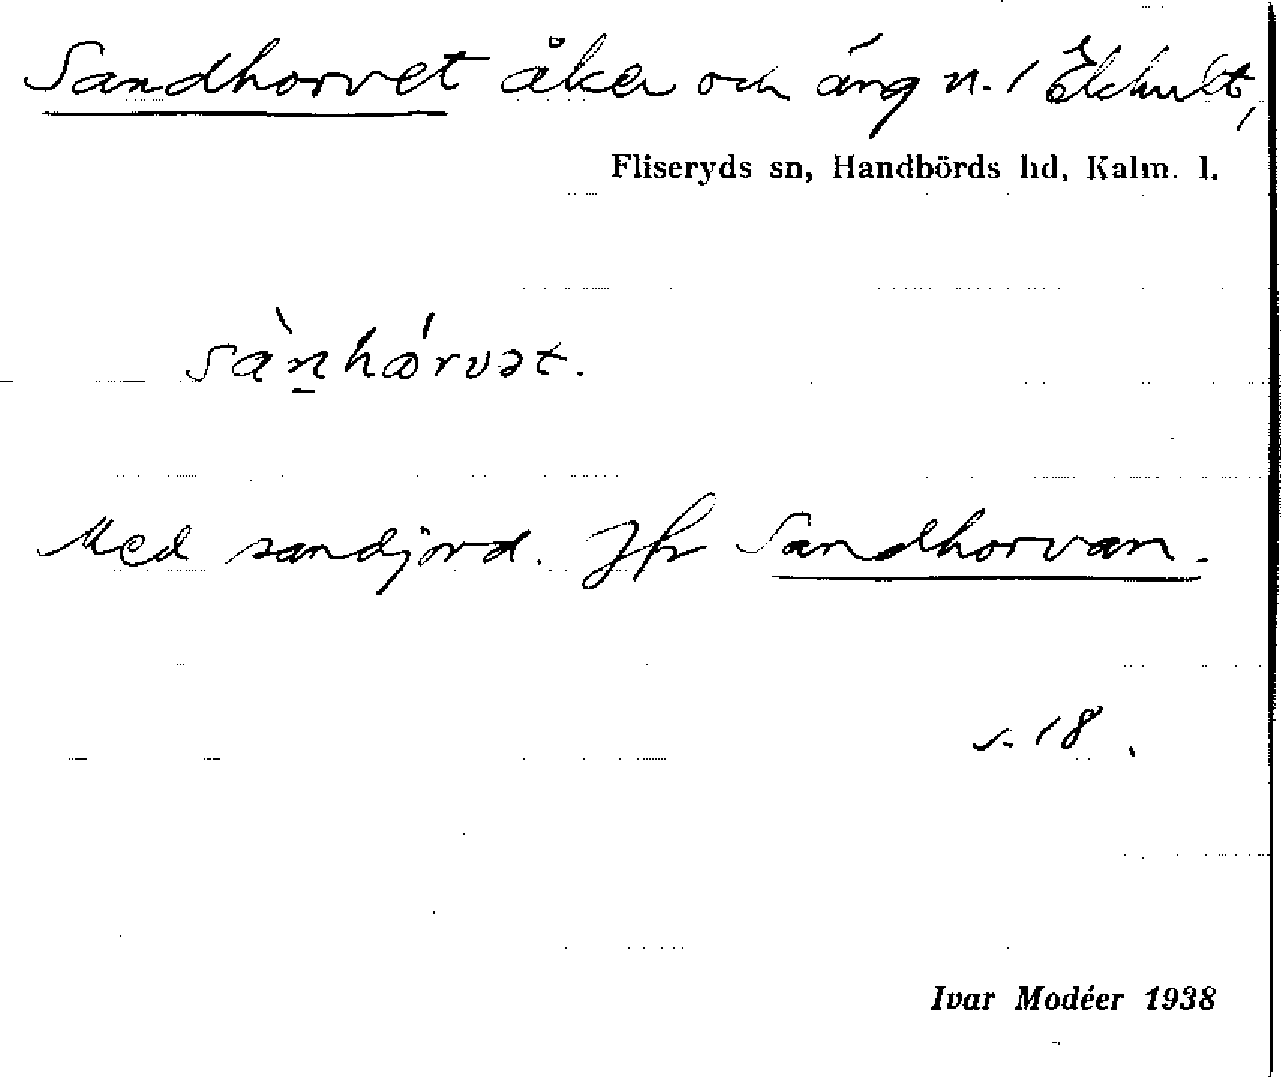 Sandhorvet åker och äng n. 1 Ekhult,
Fliseryds sn, Handbörds hd, Kalm. l.
sàn̲hǿrvət.
Med sandjord. Jfr Sandhorvan.
s. 18.
Ivar Modéer 1938